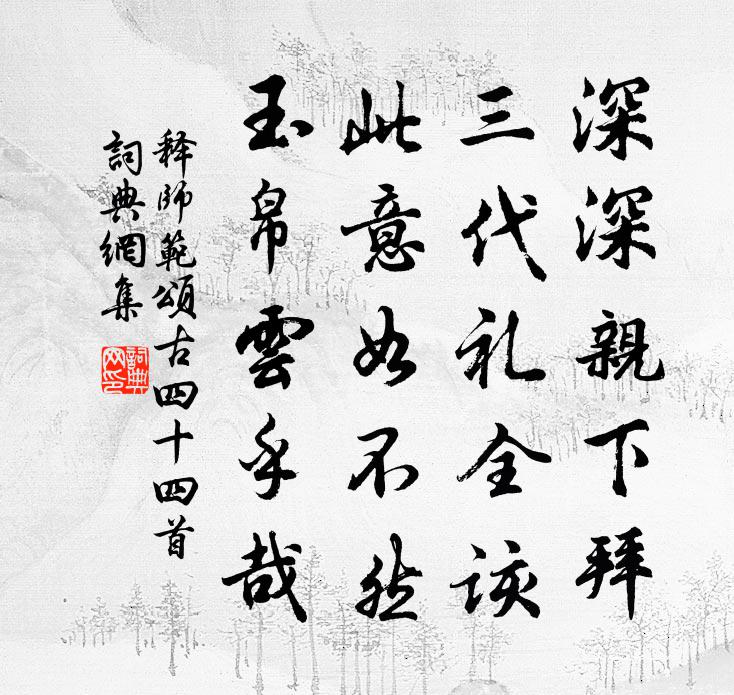 深深親下拜
三代礼全該
此意如不然
玉帛雲乎哉
释師範頌古四十四首
詞典網集
詞典網印